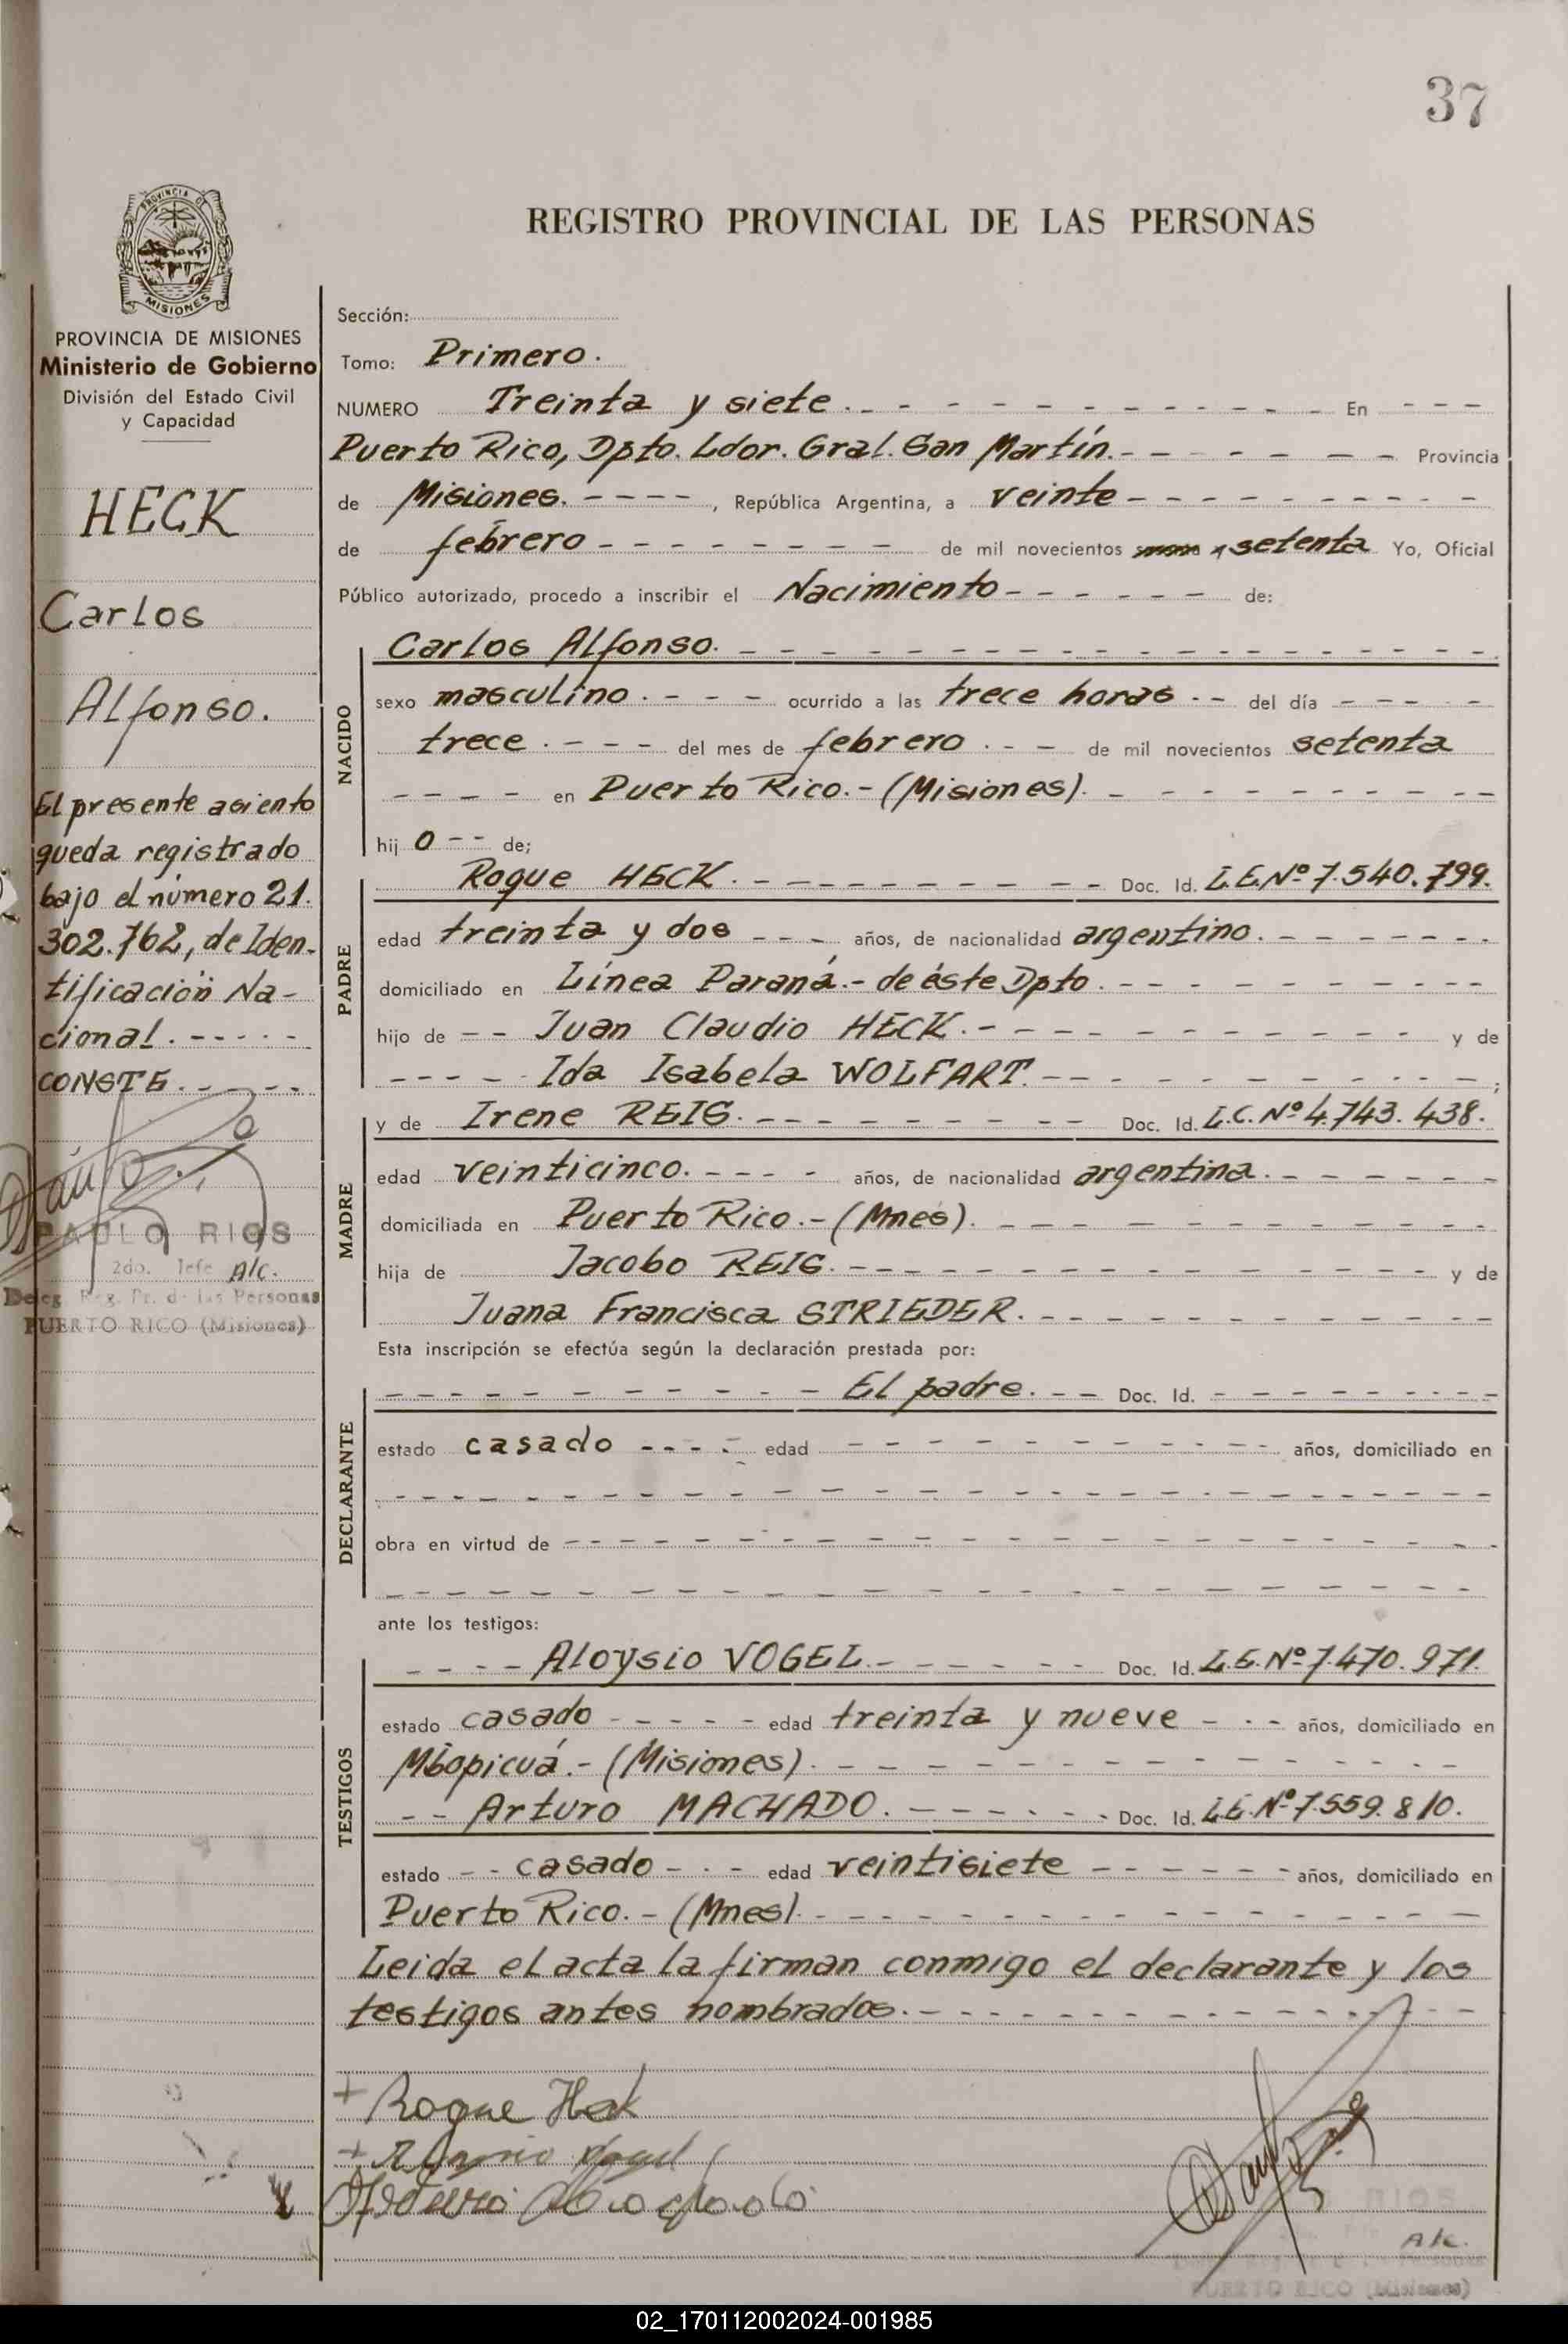 37
PROVINCIA DE
MISIONES
REGISTRO PROVINCIAL DE LAS PERSONAS
PROVINCIA DE MISIONES
Ministerio de Gobierno
División del Estado Civil
y Capacidad
HECK
Carlos
Alfonso.
El presente asiento
queda registrado
bajo el número 21.
302.762, de Iden-
tificación Na-
cional.-----
CONSTE.----
PABLO RIOS
2do. Jefe A/c.
Deleg. Reg. Pr. de las Personas
PUERTO RICO (Misiones)
Sección:
Tomo: Primero.
NUMERO Treinta y siete.- - - - - - - - - - - En - - -
Puerto Rico, Dpto. Ldor. Gral. San Martín.- - - - - - - Provincia
de Misiones. - - - -, República Argentina, a veinte - - - - - - - - -
de febrero - - - - - - - - de mil novecientos setenta Yo, Oficial
Público autorizado, procedo a inscribir el Nacimiento - - - - - - de:
NACIDO
Carlos Alfonso. - - - - - - - - - - - - - - - - - -
sexo masculino. - - - ocurrido a las trece horas. - - del día - - - - -
trece. - - - del mes de febrero. - - de mil novecientos setenta
- - - - en Puerto Rico.- (Misiones). - - - - - - - - -
hijo - - de;
PADRE
Roque HECK. - - - - - - - - - Doc. Id. L.E.Nº 7.540.799.
edad treinta y dos - - - años, de nacionalidad argentino. - - - - - - -
domiciliado en Línea Paraná.- de éste Dpto. - - - - - - - - -
hijo de - - Juan Claudio HECK. - - - - - - - - - - y de
- - - - Ida Isabela WOLFART. - - - - - - - - - - ;
MADRE
y de Irene REIS. - - - - - - - - Doc. Id. L.C. Nº 4.743.438.
edad veinticinco. - - - - años, de nacionalidad argentina. - - - - - -
domiciliada en Puerto Rico.- (Mnes). - - - - - - - - - - -
hija de Jacobo REIS. - - - - - - - - - - - - y de
Juana Francisca STRIEDER. - - - - - - - - - -
Esta inscripción se efectúa según la declaración prestada por:
DECLARANTE
- - - - - - - - - - El padre. - - Doc. Id. - - - - - - - -
estado casado - - - - edad - - - - - - - - - - - años, domiciliado en
- - - - - - - - - - - - - - - - - - - - - - - -
obra en virtud de - - - - - - - - - - - - - - - - - -
- - - - - - - - - - - - - - - - - - - - - - -
ante los testigos:
TESTIGOS
- - - - Aloysio VOGEL. - - - - - - - Doc. Id. L.E.Nº 7.470.971.
estado casado - - - - - edad treinta y nueve - - - años, domiciliado en
Mbopicuá.- (Misiones). - - - - - - - - - - - - -
- - Arturo MACHADO. - - - - - - - Doc. Id. L.E.Nº 7.559.810.
estado - - casado - - - edad veintisiete - - - - - - años, domiciliado en
Puerto Rico.- (Mnes). - - - - - - - - - - - - - -
Leida el acta la firman conmigo el declarante y los
testigos antes nombrados. - - - - - - - - - - - -
+ Roque Heck
RIOS
A/c.
PUERTO RICO (Misiones)
02_170112002024-001985